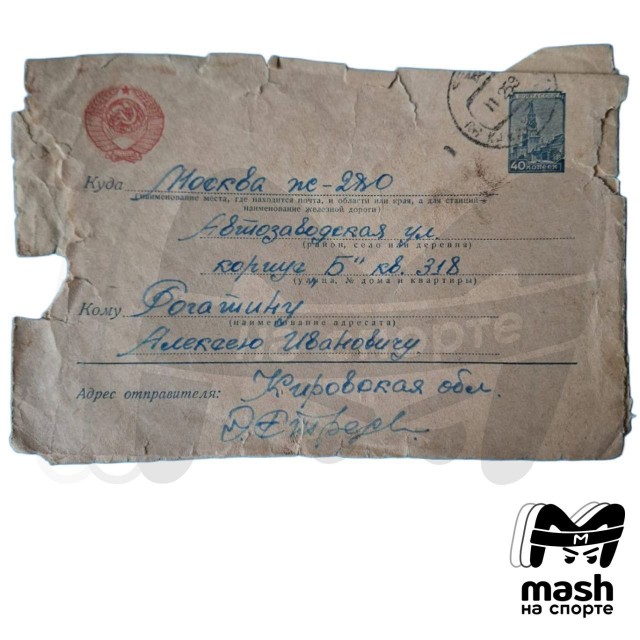 40 КОПЕЕК
Куда Москва ж-280
(наименование места, где находится почта, и области или края, а для станций-
наименование железной дороги)
Автозаводская ул.
(район, село или деревня)
корпус „Б" кв. 318
(улица, № дома и квартиры)
Кому Рогатину
(наименование адресата)
Алексею Ивановичу
Адрес отправителя: Кировская обл.
mash
на спорте
M
mash
на спорте